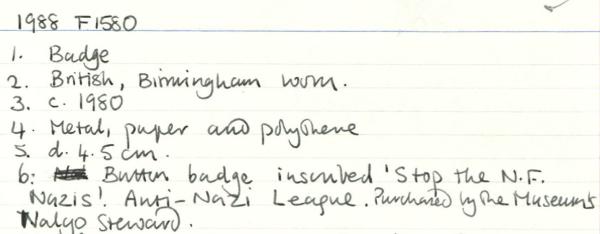 1988 F1580
1. Badge
2. British, Birmingham worn.
3. c. 1980
4. Metal, paper and polythene
5. d. 4.5 cm.
6: Button badge inscribed 'Stop the N.F.
Nazis'. Anti-Nazi League. Purchased by the Museum's
Nalgo Steward.